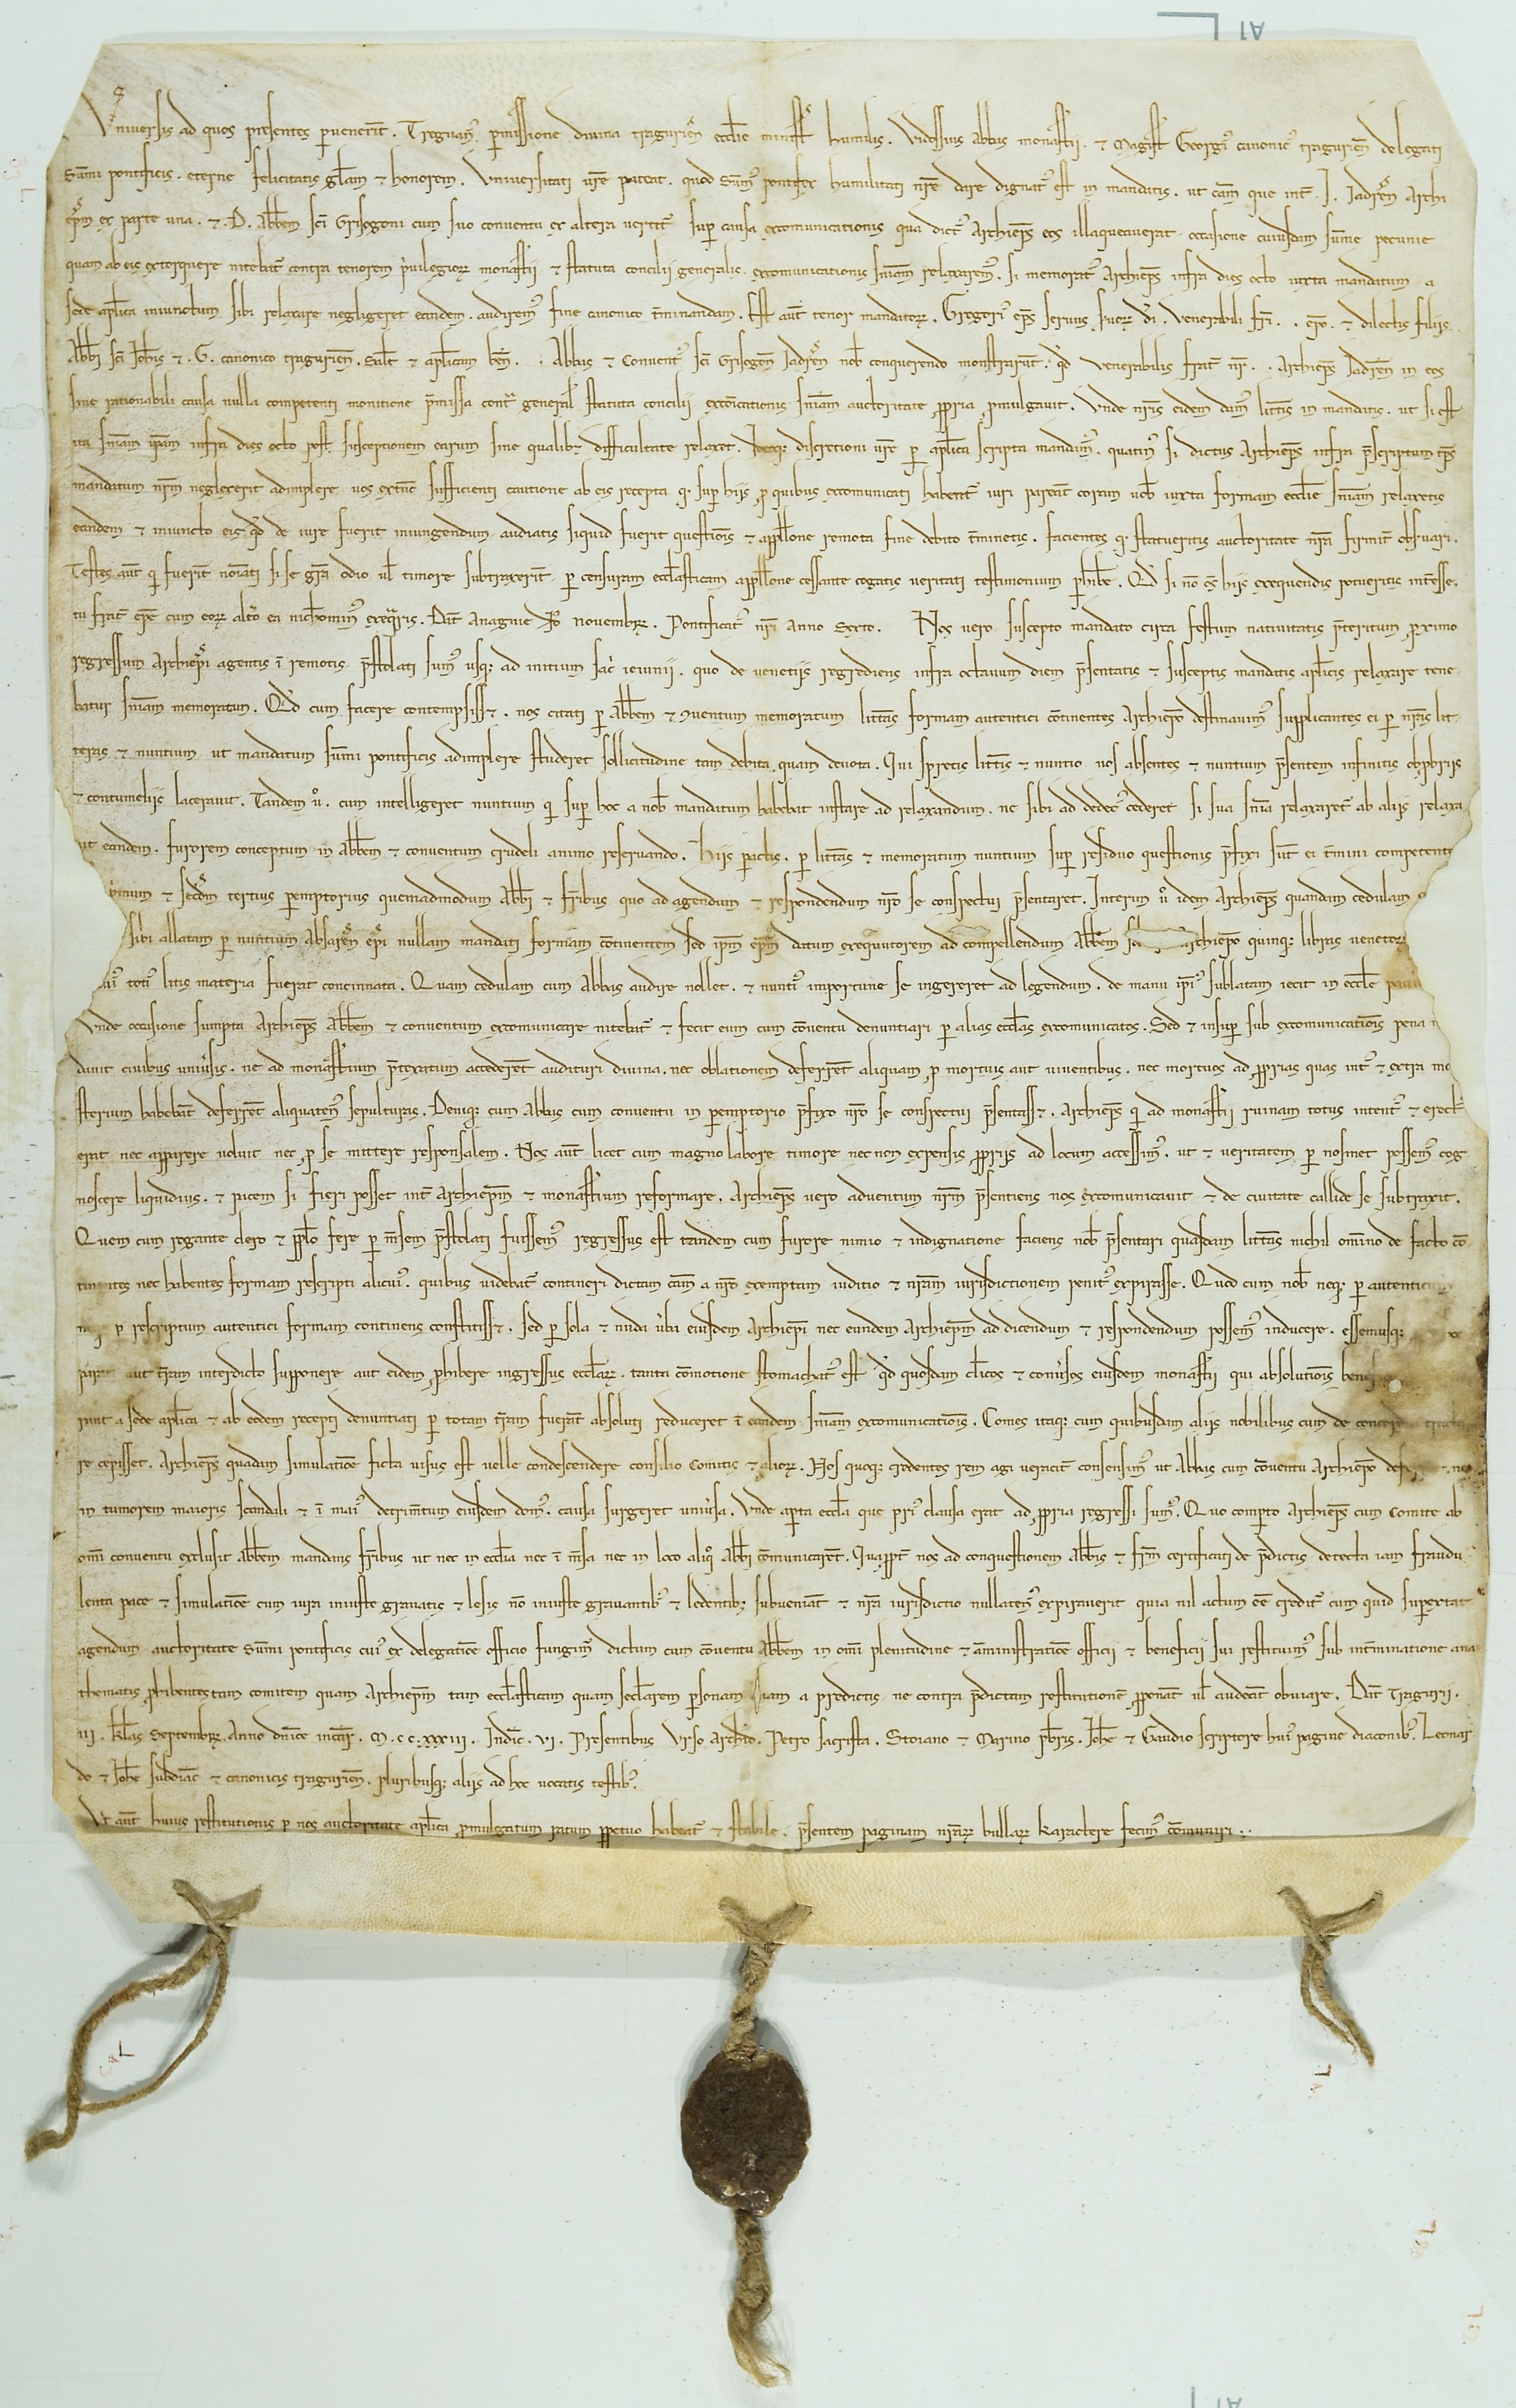 Vniuersis ad quos presentes peruenerīt. Treguanꝰ permissione diuina tragurieñ ecclie ministꝰ humilis. Videssius abbas monastii. ⁊ Magist Georgiꝰ canonicꝰ traguriēn delegati
Sūmi pontificis. eterne felicitatis gl̄am ⁊ honorem. Vniuersitati ur̄e pateat. quod sūmꝰ pontifex humilitati nr̄e dare dignatꝰ est in mandatis. ut cām que int̄. J. Jadreñ Archi
ep̄m ex parte una. ⁊ .D. Abb̄em sc̄i Grisogoni cum suo conuentu ex altera uertit̄ super causa excomunicationis qua dictꝰ Archiep̄s eos illaqueauerat occasione cuiusdam sum̄e pecunie
quam ab eis extorquere nitebat̄ contra tenorem p̄uilegiorꝝ monastii ⁊ statuta concilii generalis. excomunicationis sn̄iam relaxaremꝰ. si memoratꝰ Archiep̄s infra dies octo iuxta mandatum a
sede ap̄lica iniunctum sibi relaxare negligeret eandem. audiremꝰ fine canonico t̄minandam. Est aut̄ tenor mandatorꝝ. Gregoriꝰ ep̄s seruus seruorꝝ di. Venerabili fr̄i . . ep̄o. ⁊ dilectis filiis
Abb̄i sc̄i Joh̄is ⁊ .G. canonico traguriēn. Sal̄t ⁊ ap̄licam ben̄. . . Abbas ⁊ Conuentꝰ sc̄i Grisogoni Jadreñ nob̄ conquerendo monstrarūt. q̄d Venerabilis frat̄ nr̄. . Archiep̄s Jadreñ in eos
sine rationabili causa nulla competenti monitione p̄missa cont̄ general̄ statuta concilii excōicationis sn̄iam auctoritate ꝓpria ꝓmulgauit. Vnde nr̄is eidem damꝰ litt̄is in mandatis. ut si est
ita sn̄iam ip̄am infra dies octo post susceptionem earum sine qualibꝫ difficultate relaxet. Ideoqꝫ discretioni ur̄e ꝑ ap̄lica scripta mandamꝰ. quatinꝰ si dictus Archiep̄s infra p̄scriptum tp̄s
mandatum nr̄m neglexerit adimplere uos extūc sufficienti cautione ab eis recepta q. super hiis ꝓ quibus excomunicati habent̄ iuri pareāt coram uob̄ iuxta formam ecclie sn̄iam relaxetis
eandem ⁊ iniuncto eis q̄d de iure fuerit iniungendum audiatis siquid fuerit questiōis ⁊ appell̄one remota fine debito t̄minetis. facientes q. statueritis auctoritate nr̄a firmit̄ obseruari.
Testes aut̄ qi fuerīt noīati si se gr̄a odio ul̄ timore subtraxerīt. ꝑ censuram eccl̄asticam appell̄one cessante cogatis ueritati testimonium ꝑhibe. Qd̄ si nō oēs hiis exequendis potueritis int̄esse.
tu frat̄ ep̄e cum eorꝝ alt̄o ea nichominꝰ exeq̄ris. Dat̄ Anagnie novembrꝝ. Pontificatꝰ nr̄i Anno Sexto. Nos uero suscepto mandato circa festum natiuitatis p̄teritum proximo
regressum Archiep̄i agentis ī remotis p̄stolati sumꝰ usqꝫ ad initium sac̄ ieiunii. quo de uenetiis regrediens infra octauum diem p̄sentatis ⁊ susceptis mandatis ap̄licis relaxare tene
batur sn̄iam memoratam. Qd̄ cum facere contempsiss⁊. nos citati ꝑ abb̄em ⁊ ꝯuentum memoratum litt̄as formam autentici cōtinentes Archiep̄o destinauimꝰ supplicantes ei ꝑ nr̄as lit
teras ⁊ nuntium ut mandatum sum̄i pontificis adimplere studeret sollicitudine tam debita quam deuota. Qui spretis litt̄is ⁊ nuntio nos absentes ⁊ nuntium p̄sentem infinitis obpbriis
⁊ contumeliis lacerauit. Tandem ů. cum intelligeret nuntium qi super hoc a nob̄ mandatum habebat instare ad relaxandum. ne sibi ad dedecꝰ cederet si sua sn̄ia relaxaret̄ ab aliis relaxa
uit eandem. furorem conceptum in abb̄em ⁊ conuentum crudeli animo reseruando. Hiis peractis. ꝑ litt̄as ⁊ memoratum nuntium super residuo questionis p̄fixi sūt ei t̄mini competent
⁊ secd̄m tertius peremptorius quemadmodum abb̄i ⁊ fr̄ibus quo ad agendum ⁊ respondendum nr̄o se conspectui p̄sentaret. Interim ů idem Archiep̄s quandam cedulam
sibi allatam ꝑ nuntium absareñ ep̄i nullam mandati formam cōtinentem sed ip̄m ep̄m datum exequutorem ad compellendum abb̄em Archiep̄o quinqꝫ libras uenetorꝝ
totiꝰ litis materia fuerat concinnata. Quam cedulam cum abbas audire nollet. ⁊ nuntiꝰ importune se ingereret ad legendum. de manu ip̄iꝰ sublatam iecit in ecclie
Vnde occasione sumpta Archiep̄s abb̄em ⁊ conuentum excomunicare nitebat̄ ⁊ fecit eum cum cōuentu denuntiari ꝑ alias eccl̄as excomunicatos. Sed ⁊ insuper sub excomunicatiōis pena
dauit ciuibus uniu̾sis. ne ad monastium p̄texatum accederēt audituri diuina. nec oblationem deferrēt aliquam ꝓ mortuis aut uiuentibus. nec mortuos ad ꝓprias quas int̄ ⁊ extra mo
sterium habebāt deferrēt aliquatenꝰ sepulturas. Deniqꝫ cum abbas cum conuentu in peremptorio p̄fixo nr̄o se conspectui p̄sentass⁊. Archiep̄s qi ad monastii ruinam totus intentꝰ ⁊ erectꝰ
erat nec apparere uoluit nec ꝓ se mittere responsalem. Nos aut̄ licet cum magno labore timore nec non expensis ꝓpriis ad locum accessimꝰ. ut ⁊ ueritatem ꝑ nosmet possemꝰ cog
noscere liquidius. ⁊ pacem si fieri posset int̄ Archiep̄m ⁊ monastium reformare. Archiep̄s uero aduentum nr̄m p̄sentiens nos excomunicauit ⁊ de ciuitate callide se subtraxit.
Quem cum rogante clero ⁊ pp̄lo fere ꝑ m̄sem p̄stolati fuissemꝰ regressus est tandem cum furore nimio ⁊ indignatione faciens nob̄ p̄sentari quasdam litt̄as nichil omīno de facto cō
tinentes nec habentes formam rescripti alicuiꝰ. quibus uidebat̄ contineri dictam cām a nr̄o exemptam iuditio ⁊ nr̄am iurisdictionem penitꝰ expirasse. Quod cum nob̄ neqꝫ ꝑ autenticum
ꝑ rescriptum autentici formam continens constitiss⁊. sed ꝑ sola ⁊ nuda u̾ba eiusdem Archiep̄i nec eundem Archiep̄m ad dicendum ⁊ respondendum possemꝰ inducere. essemusqꝫ
aut t̄ram interdicto supponere aut eidem ꝓhibere ingressus eccl̄arꝝ. tanta cōmotione stomachatꝰ est q̄d quosdam cl̄icos ⁊ conu̾sos eiusdem monastii qui absolutiōis
runt a sede ap̄lica ⁊ ab eodem recepti denuntiati ꝑ totam t̄ram fuerāt absoluti reduceret ī eandem sn̄iam excomunicatiōis. Comes itaqꝫ cum quibusdam aliis nobilibus cum de
re cepisset. Archiep̄s quadam simulatiōe ficta uisus est uelle condescendere consilio Comitis ⁊ aliorꝝ. Nos quoqꝫ credentes rem agi ueracit̄ consensimꝰ ut abbas cum cōuentu Archiep̄o
in tumorem maioris scandali ⁊ ī maiꝰ detrim̄tum eiusdem domꝰ. causa surgeret uniu̾sa. Vnde aperta eccl̄a que priꝰ clausa erat ad ꝓpria regressi sumꝰ. Quo comperto Archiep̄s cum Comite ab
omī conuentu exclusit abb̄em mandans fr̄ibus ut nec in ecclia nec ī m̄sa nec in loco aliqo abb̄i cōmunicarēt. Quapropt̄ nos ad conquestionem abb̄is ⁊ fr̄m certificati de p̄dictis detecta iam fraudu
lenta pace ⁊ simulatiōe cum iura iniuste grauatis ⁊ lesis nō iniuste grauantibꝰ ⁊ ledentibꝫ subueniāt ⁊ nr̄a iurisdictio nullatenꝰ expirauerit quia nil actum eē credit̄ cum quid superextat
agendum auctoritate sum̄i pontificis cuiꝰ ex delegatiōe officio fungimꝰ dictum cum cōuentu abb̄em in omī plenitudine ⁊ aministratiōe officii ⁊ beneficii sui restituimꝰ sub int̄minatione ana
thematis ꝓhibentes tam comitem quam Archiep̄m tam eccl̄asticam quam secl̄arem personam a predictis ne contra p̄dictam restitutionē ꝓponāt ul̄ audeāt obuiare. Dat̄ Tragurii.
iii. kl̄as Septembrꝝ. Anno dn̄ice incar̄. M.cc.xxxiii. Indic̄. vi. Presentibus Vrso Archid̄. Petro sacrista. Stoiano ⁊ Marino p̄bris. Joh̄e ⁊ Gaudio scriptore huiꝰ pagine diaconibꝰ. Leonar
do ⁊ Joh̄e subdiac̄ ⁊ canonicis traguriēn. pluribusqꝫ aliis ad hoc uocatis testibꝰ.
Vt aut̄ huius restitutionis ꝑ nos auctoritate ap̄lica ꝓmulgatum ratum ꝑpetuo habeat̄ ⁊ stabile. p̄sentem paginam nr̄arꝝ bullarꝝ karactere fecimꝰ cōmuniri . .